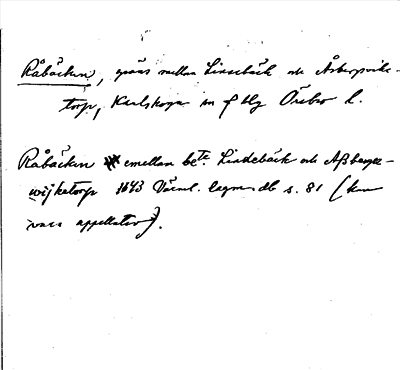 Råbäcken, gräns mellan Linebäck och Åsbergsvike-
torp, Karlskoga sn o hd Örebro l.
Råbäcken emellan bete. Lindebäck och Aßberges-
wijketorp 1643 Värml. lagm.db s. 81 (kan
vara appellativ).